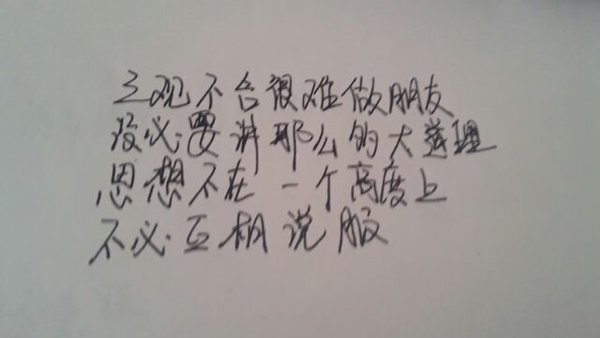 三观不合很难做朋友
没必要讲那么的大道理
思想不在一个高度上
不必互相说服